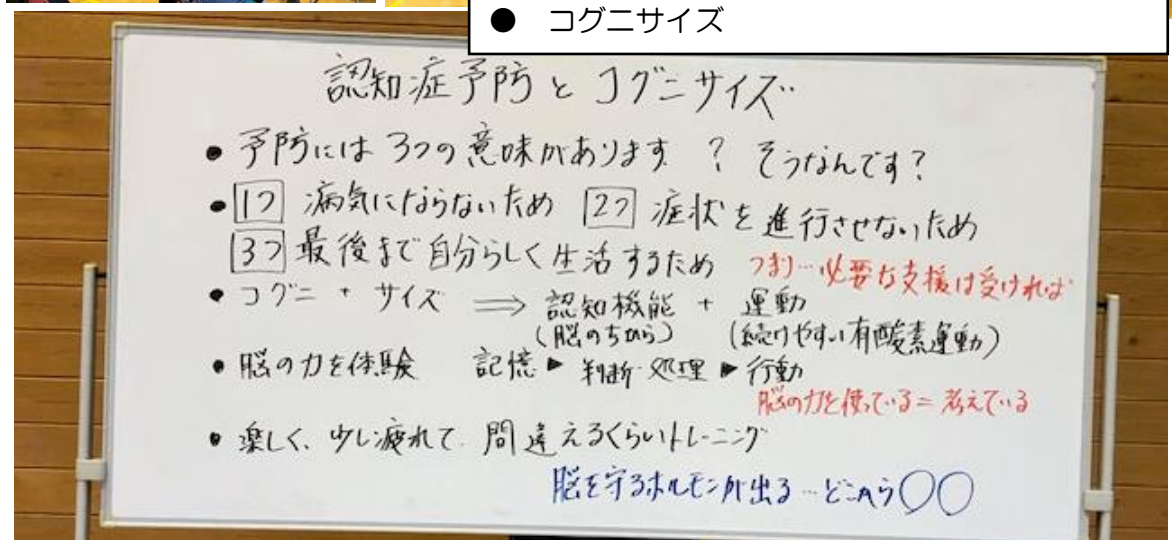 ● コグニサイズ
認知症予防とコグニサイズ
• 予防には3つの意味があります ? そうなんです?
• 1つ 病気にならないため 2つ 症状を進行させないため
3つ 最後まで自分らしく生活するため つまり…必要な支援は受ければ
• コグニ + サイズ ⇒ 認知機能 + 運動
(脳のちから) (続けやすい有酸素運動)
• 脳の力を体験 記憶 ▶ 判断・処理 ▶ 行動
脳の力を使っている = 考えている
• 楽しく、少し疲れて 間違えるくらいトレーニング
脳を守るホルモンが出る…どこから〇〇